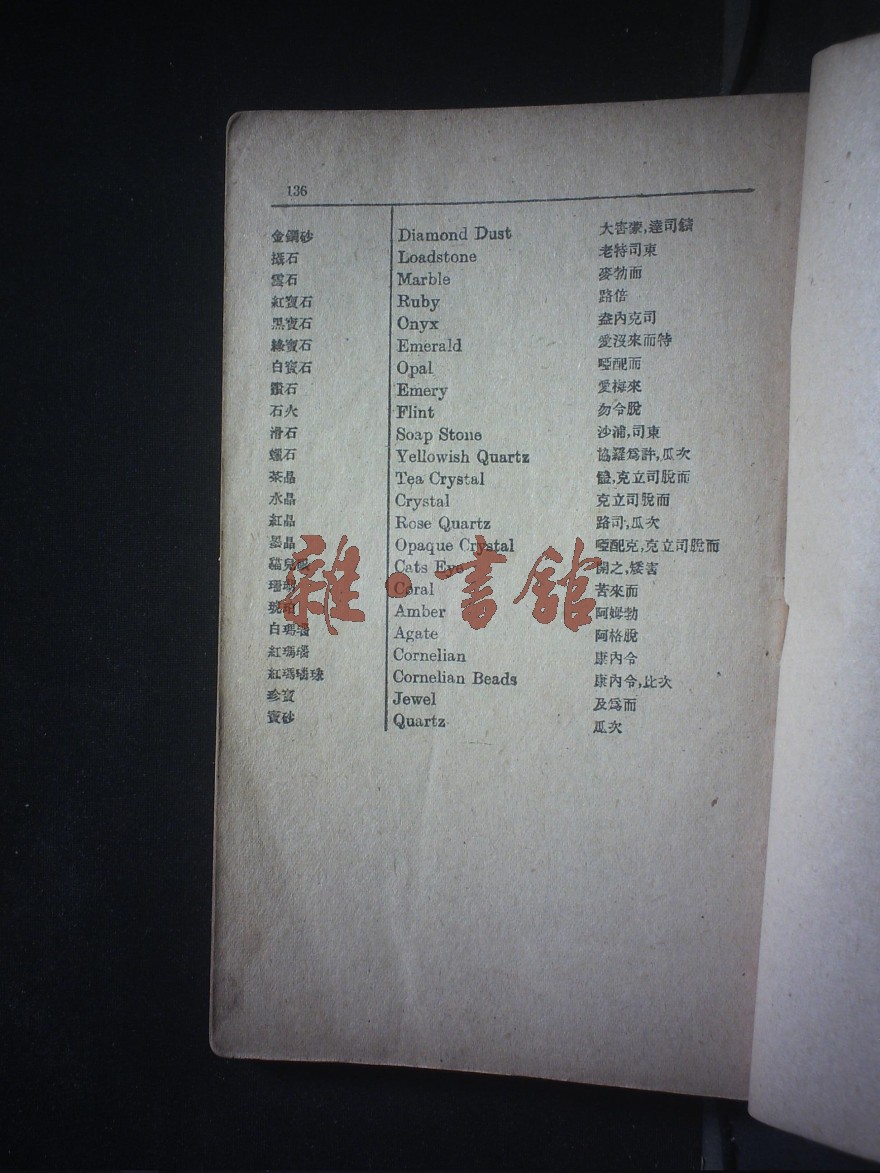 136
金鋼砂 Diamond Dust 大害蒙,達司
石 Loadstone 老特司東
雲石 Marble 麥勃而
紅寶石 Ruby 路倍
黑寶石 Onyx 盎內克司
綠寶石 Emerald 愛沒來而特
白寶石 Opal 啞配而
鑽石 Emery 愛梅來
石火 Flint 勿令脫
滑石 Soap Stone 沙浦,司東
蠟石 Yellowish Quartz 協羅爲許,瓜次
茶晶 Tea Crystal 克立司脫而
水晶 Crystal 克立司脫而
紅晶 Rose Quartz 路司,瓜次
墨晶 Opaque Crystal 啞配克,克立司脫而
貓兒眼 Cats Eye 開之,矮害
珊瑚 Coral 苦來而
琥珀 Amber 阿姆勃
白瑪瑙 Agate 阿格脫
紅瑪瑙 Cornelian 康內令
紅瑪瑙珠 Cornelian Beads 康內令,比次
珍寶 Jewel 及爲而
寶砂 Quartz 瓜次
雜·書館